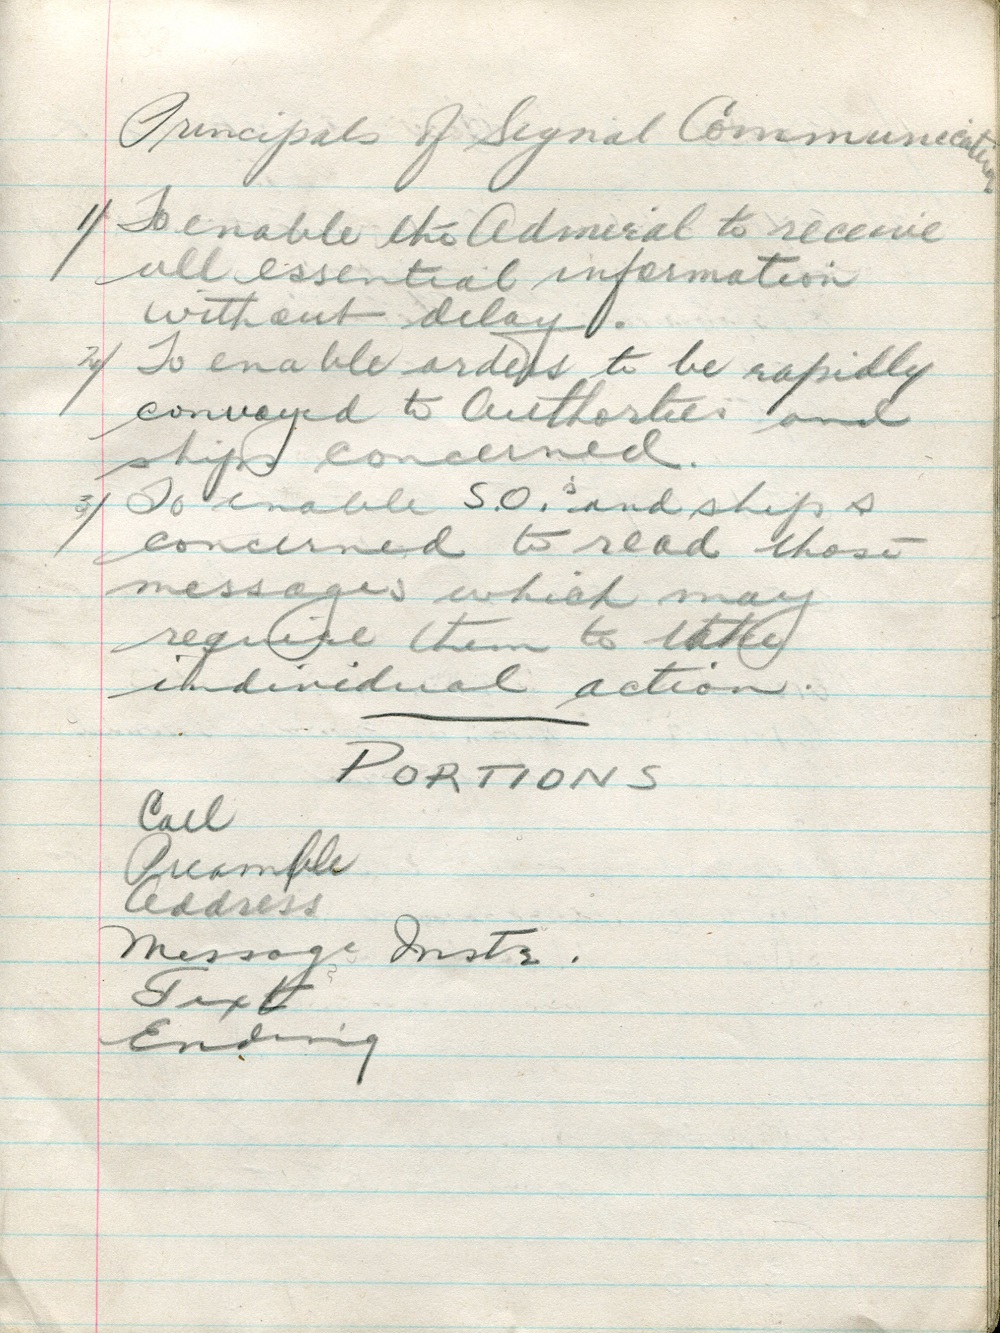 Principals of Signal Communication
1/ To enable the Admiral to receive
all essential information
without delay.
2/ To enable orders to be rapidly
conveyed to Authorties and
ships concerned.
3/ To enable S.O.'s and ships
concerned to read those
messages which may
require them to take
individual action.
PORTIONS
Call
Preamble
Address
Message Instr.
Text
Ending